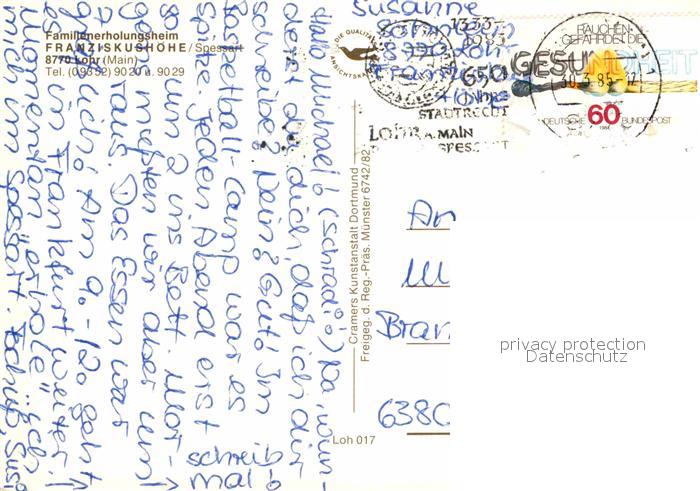 Familienerholungsheim
FRANZISKUSHÖHE / Spessart
8770 Lohr (Main)
Tel. (09352) 9020 u. 9029
Hallo Michael! (schradiö) Na, wun-
derst du dich, daß ich dir
schreibe? Nein? Gut! Im
Basketball-Camp war es
spitze. Jeden Abend erst
so um 2 ins Bett. Mor-
gens mußten wir aber um
7 raus. Das Essen war
Am 9.-12. geht
es in Frankfurt weiter!
Momentan erhole ich
mich im Spessart. Tschüß, Susi
schreib
mal!
DIE QUALITÄTS
ANSICHTSKARTE
Susanne
1333-
1983
650
Jahre
STADTRECHT
LOHR A. MAIN
SPESSART
RAUCHEN
GEFÄHRDET DIE
GESUNDHEIT
30.3.85-12
60
DEUTSCHE BUNDESPOST
1984
Cramers Kunstanstalt Dortmund
Freigeg. d. Reg.-Präs. Münster 6742/82
Loh 017
An
M
Bran
6380
privacy protection
Datenschutz